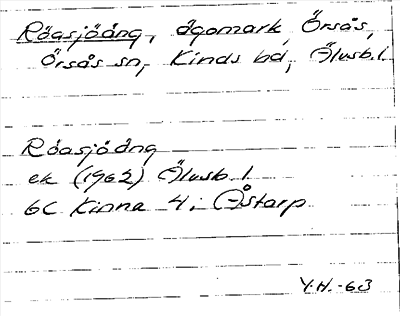 Röasjöäng, ägomark, Örsås,
Örsås sn, Kinds hd, Älvsb. l.
Röasjöäng
ek (1962) Älvsb l
6C Kinna 4i Åstarp
Y.H. -63